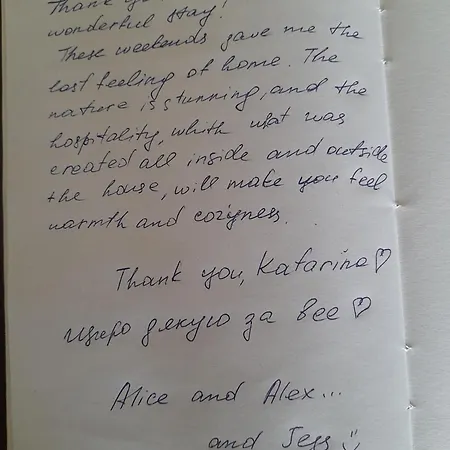 Thank you
wonderful stay!
These weekends gave me the
lost feeling of home. The
nature is stunning, and the
hospitality, whith what was
created all inside and outside
the house, will make you feel
warmth and cozyness.
Thank you, Katarina♡
щиро дякую за все ♡
Alice and Alex...
and Jess :)